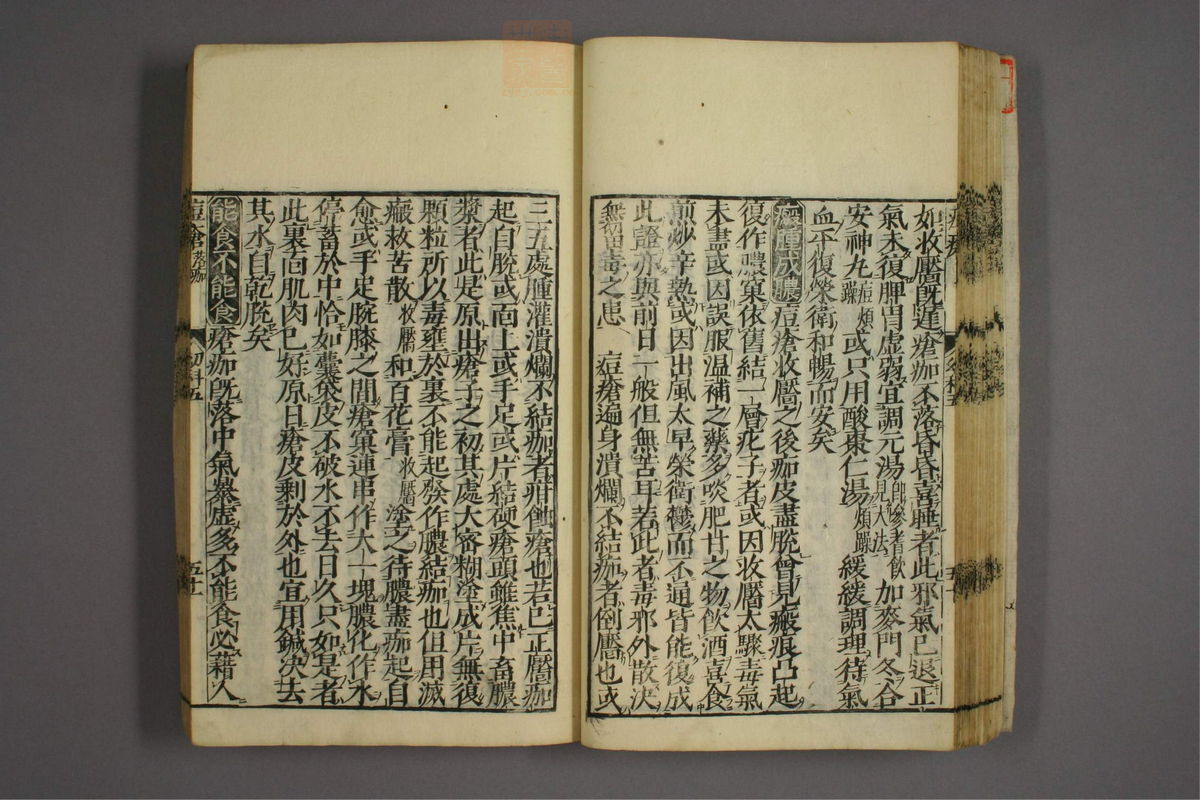 如收靨旣遲瘡痂不落昏昏喜睡者此邪氣已退正
氣未復脾胃虛弱宜調元湯卽參耆飮見大法加麥門冬合
安神丸痘煩躁或只用酸棗仁湯煩躁緩緩調理待氣
血平復榮衛和暢而安矣
瘢腫成膿痘瘡收靨之後痂皮盡脫曾見瘢痕凸起
復作膿窠依舊結一層疕子者或因收靨太驟毒氣
未盡或因誤服溫補之藥多啖肥甘之物飮酒喜食
煎炒辛熱或因出風太早榮衞鬱而不通皆能復成
此證亦與前日一般但無苦耳若此者毒邪外散決
無留毒之患 痘瘡遍身潰爛不結痂者倒靨也或
三五處腫灌潰爛不結痂者疳蝕瘡也若已正靨痂
起自脫或面上或手足或片結硬瘡頭雖焦中畜膿
漿者此是原出瘡子之初其處大密糊塗成片無復
顆粒所以毒壅於裏不能起發作膿結痂也但用滅
瘢救苦散收靨和百花膏收靨塗之待膿盡痂起自
愈或手足脘膝之間瘡窠連串作大一塊膿化作水
停畜於中恰如囊袋皮不破水不去日久只如是者
此裏面肌肉已好原日瘡皮剩於外也宜用鍼決去
其水自乾脫矣
能食不能食瘡痂旣落中氣暴虛多不能食必藉人
痘瘡 五十一